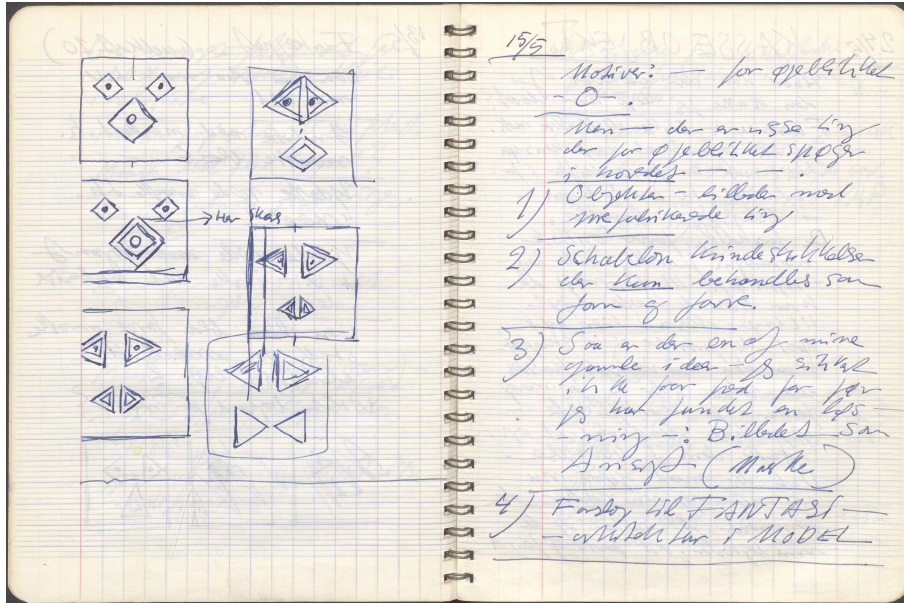 Her skæg
15/5
Motiver: — for øjeblikket
- O - .
Men — der er visse ting
der for øjeblikket spøger
i hovedet — — .
1) Objekter - billeder med
præfabrikerede ting
2) Schablon Kindeskikkelser
der kun behandles som
form og farve.
3) Saa er der en af mine
gamle ideer - jeg sikkert
ikke faar fred for før
jeg har fundet en løs-
-ning -: Billedet som
Ansigt (Maske)
4) Forslag til FANTASI-
- arkitektur i MODEL